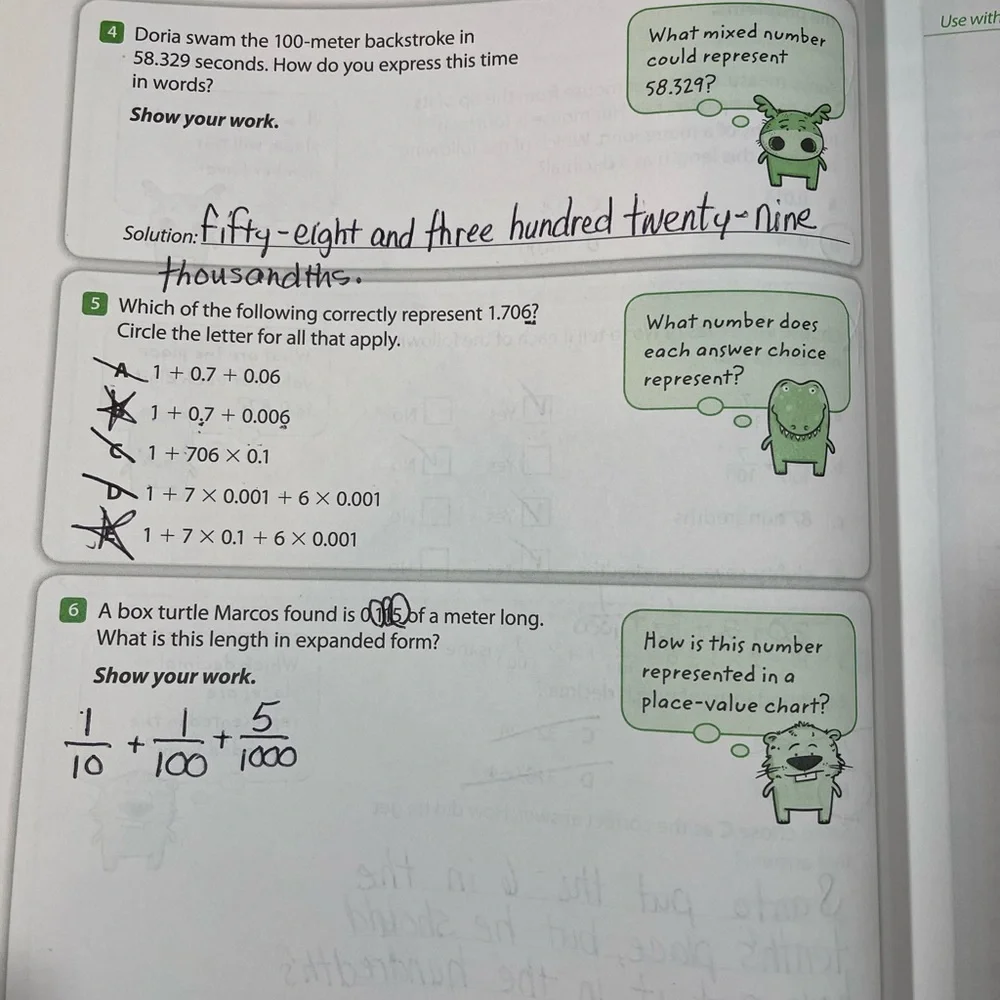 Use with
4 Doria swam the 100-meter backstroke in
58.329 seconds. How do you express this time
in words?
Show your work.
What mixed number
could represent
58.329?
Solution: fifty-eight and three hundred twenty-nine
thousandths.
5 Which of the following correctly represent 1.706?
Circle the letter for all that apply.
A 1 + 0.7 + 0.06
B 1 + 0.7 + 0.006
C 1 + 706 × 0.1
D 1 + 7 × 0.001 + 6 × 0.001
E 1 + 7 × 0.1 + 6 × 0.001
What number does
each answer choice
represent?
6 A box turtle Marcos found is 0.115 of a meter long.
What is this length in expanded form?
Show your work.
1/10 + 1/100 + 5/1000
How is this number
represented in a
place-value chart?